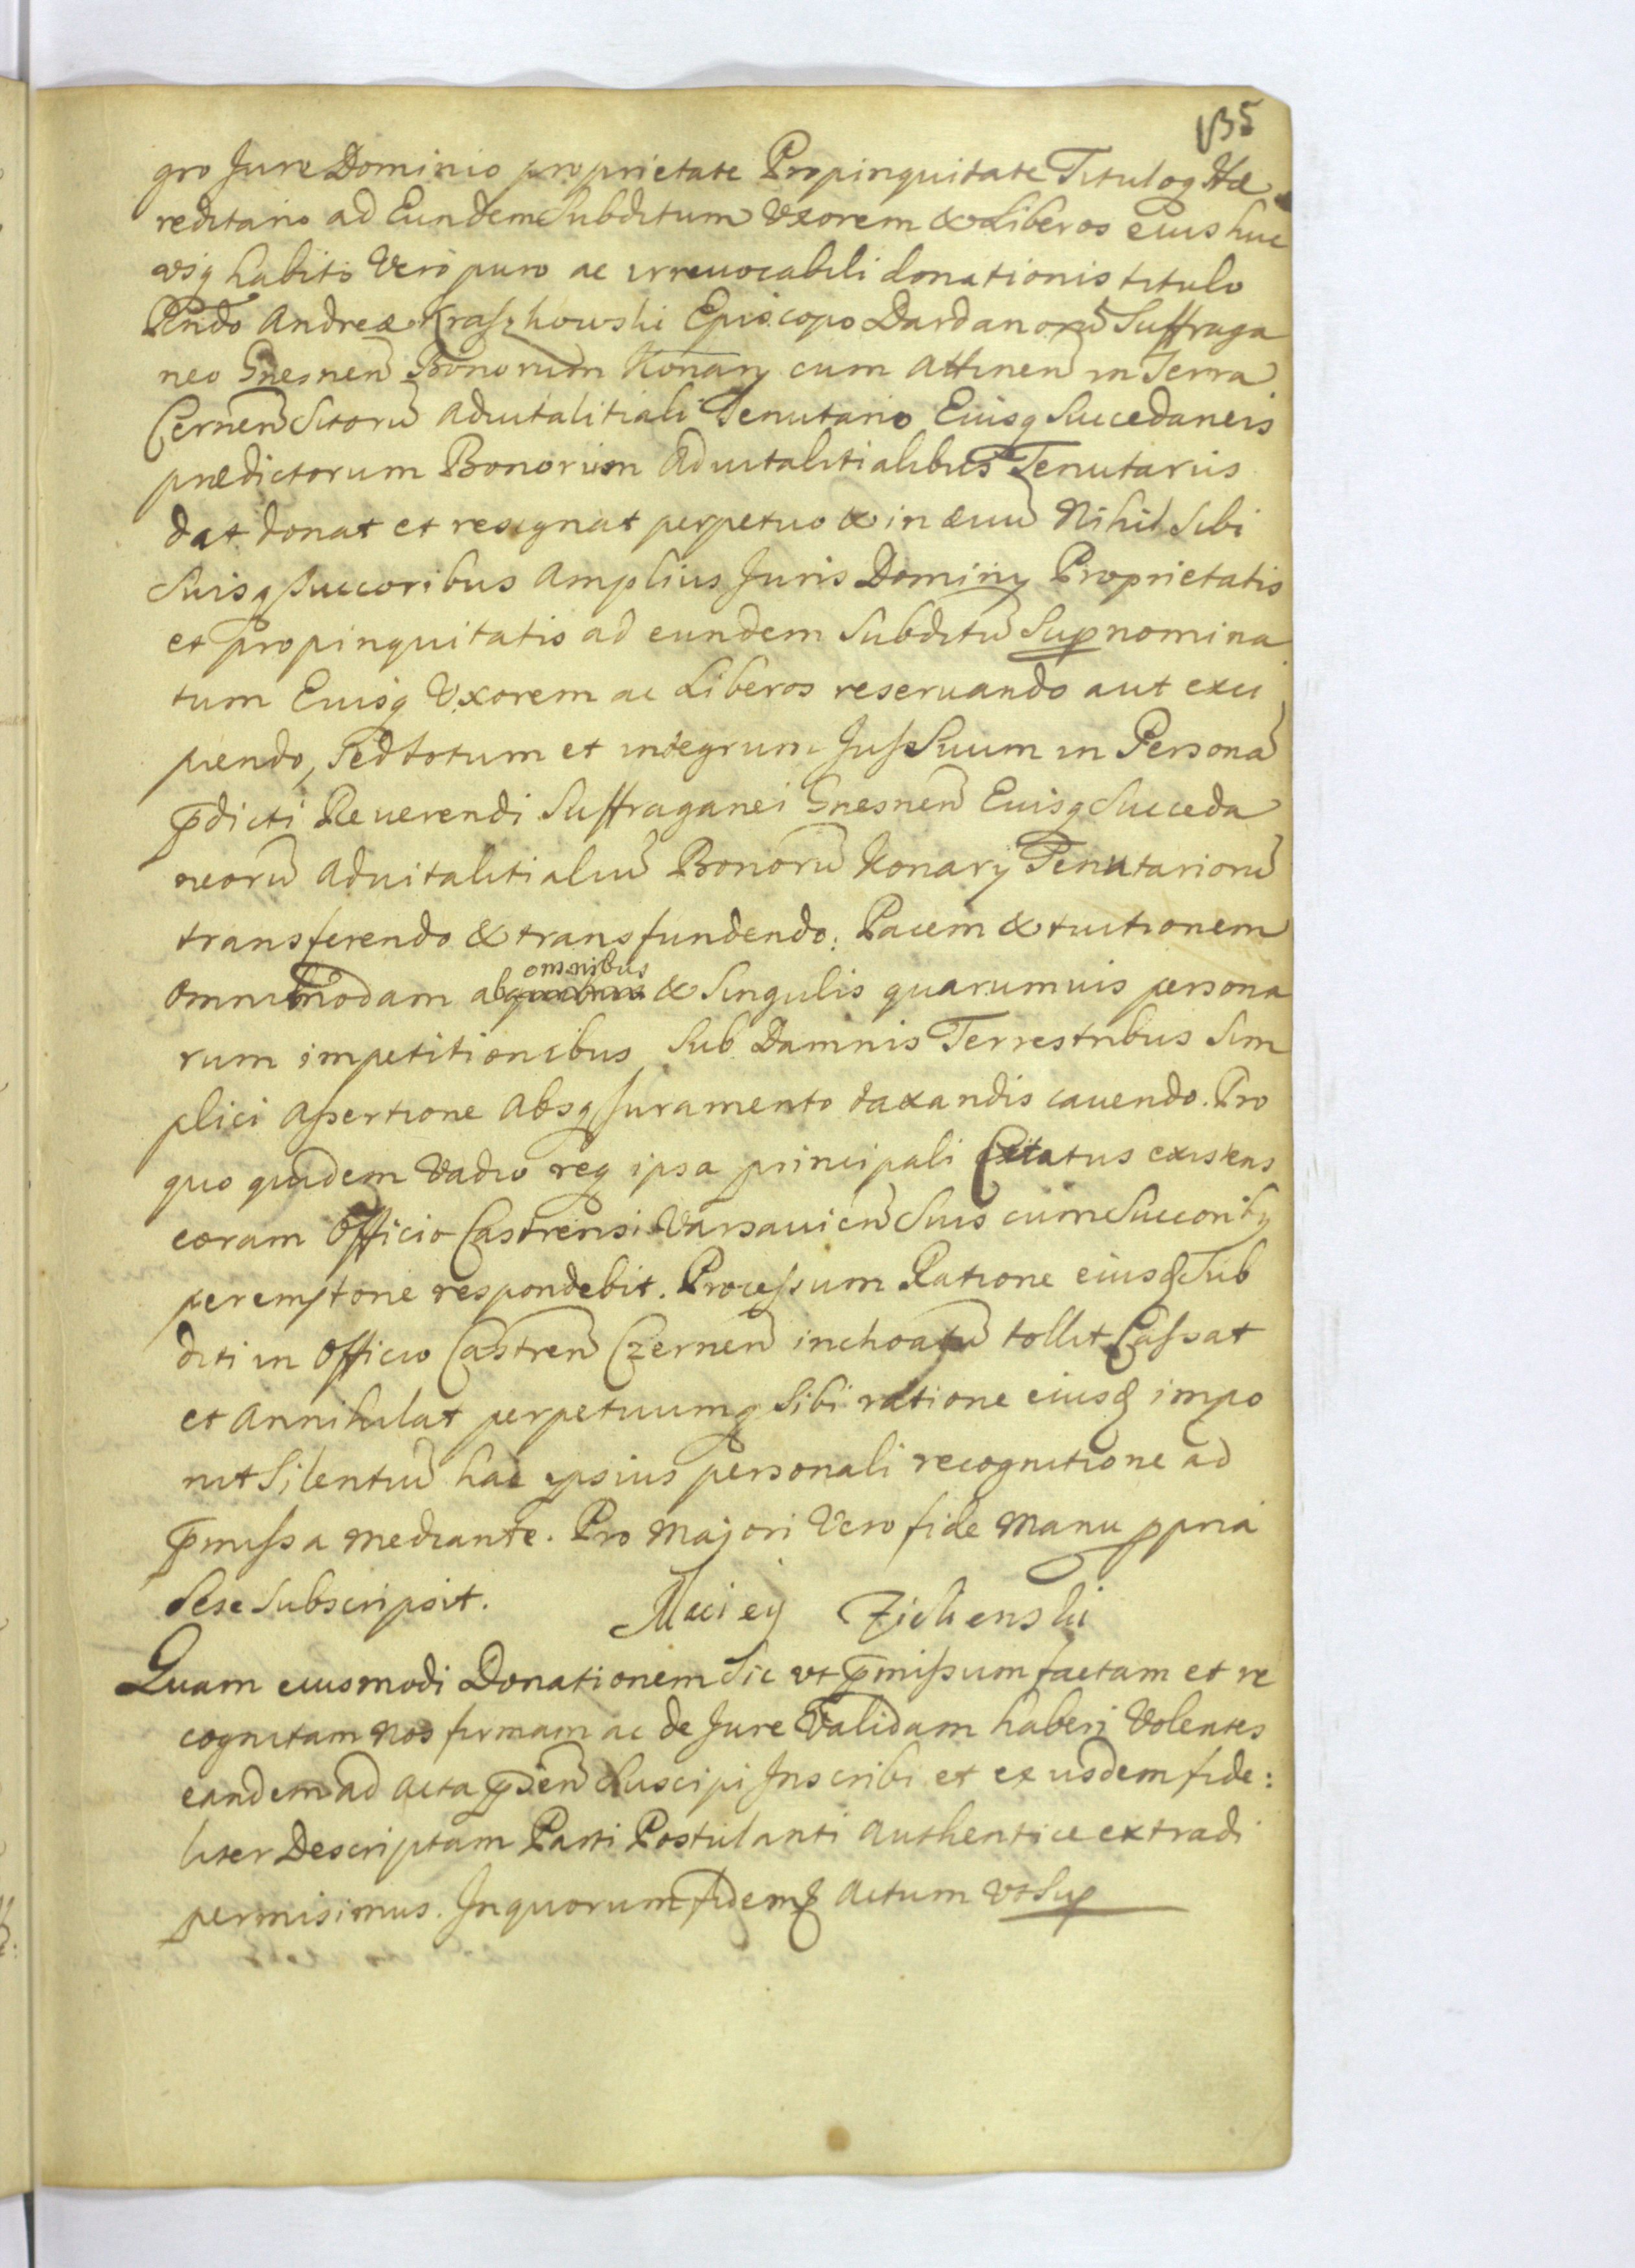 135
gro Jure Dominio proprietate Propinquitate Tituloq Hæ
reditario ad Eundem Subditum Vxorem & Liberos eius huc
vsq habito Vero puro ac irreuocabili donationis titulo
Rndo Andreæ Kraszkowski Episcopo Dardanorũ Suffraga
neo Gnesnen Bonorum Konary cum Attinen in Terra
Cernen Sitorũ Aduitalitiali Tenutario Eiusq Succedaneis
prædictorum Bonorum Aduitalitialibus Tenutariis
dat donat et resignat perpetuo & in æuũ Nihil Sibi
Suisq succoribus Amplius Juris Dominÿ Proprietatis
et propinquitatis ad eundem Subditũ Supnomina
tum Eiusq Vxorem ac Liberos reseruando aut exci
piendo, Sed totum et integrum Jus Suum in Personã
p̄dicti Reuerendi Suffraganei Gnesnen Eiusq Succeda
neorũ Aduitalitialiũ Bonorũ Konary Tenutariorũ
transferendo & transfundendo: Pacem & tuitionem
omnimodam ab omnibus & Singulis quarumuis persona
rum impetitionibus Sub Damnis Terrestribus Sim
plici Assertione Absq Juramento taxandis cauendo. Pro
quo quidem Vadio req ipsa principali Citatus existens
coram Officio Castrensi Varsauien Suis cum Succoribq
peremptorie respondebit. Processum Ratione eiusd Sub
diti in Officio Castren Czernen inchoatũ tollit Cassat
et Annihilat perpetuumq Sibi ratione eiusd impo
nit Silentiũ hac ipsius personali recognitione ad
p̄missa mediante. Pro Majori Vero fide Manu ppria
Sese Subscripsit. Maciey Zichenski
Quam eiusmodi Donationem Sic vt p̄missum factam et re
cognitam nos firmam ac de Jure Validam haberi Volentes
eandem ad Acta p̄sen Suscipi Inscribi et ex iisdem fide:
liter Descriptam Parti Postulanti Authentice extradi
permisimus. In quorum fidem Actum vt Sup